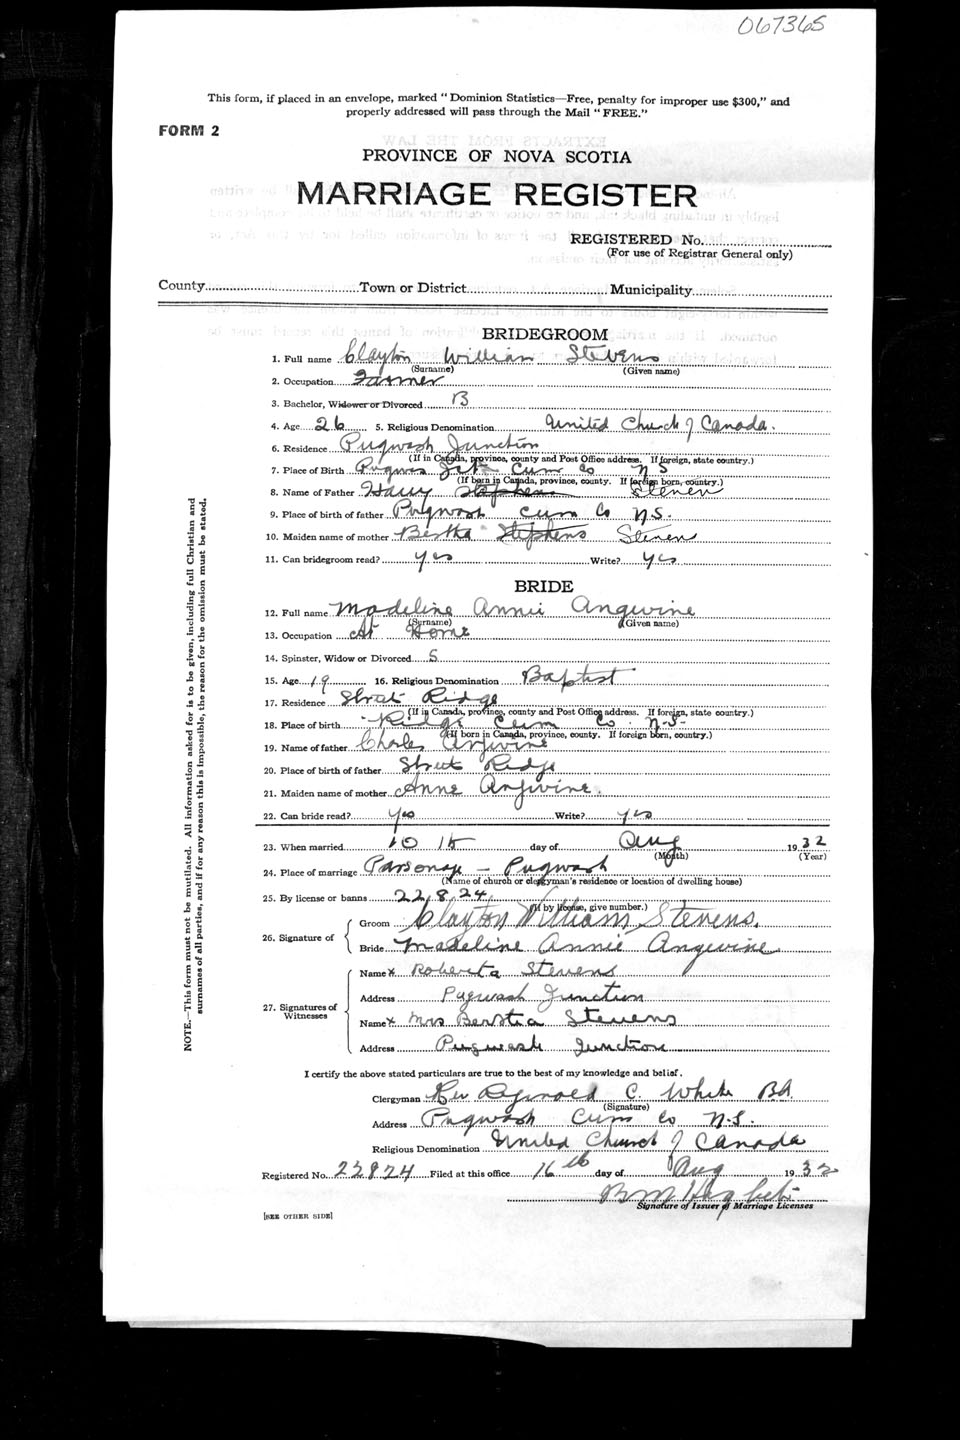 067365
This form, if placed in an envelope, marked "Dominion Statistics—Free, penalty for improper use $300," and
properly addressed will pass through the Mail "FREE."
FORM 2
PROVINCE OF NOVA SCOTIA
MARRIAGE REGISTER
REGISTERED No.
(For use of Registrar General only)
County Town or District Municipality
BRIDEGROOM
1. Full name Clayton William Stevens
(Surname) (Given name)
2. Occupation Farmer
3. Bachelor, Widower or Divorced B
4. Age 26 5. Religious Denomination United Church of Canada.
6. Residence Pugwash Junction
(If in Canada, province, county and Post Office address. If foreign, state country.)
7. Place of Birth Pugwas Jct Cum Co N S
(If born in Canada, province, county. If foreign born, country.)
8. Name of Father Harry Stephens Steven
9. Place of birth of father Pugwash Cum Co N.S.
10. Maiden name of mother Bertha Stephens Steven
11. Can bridegroom read? yes Write? yes
BRIDE
12. Full name Madeline Annie Angevine
(Surname) (Given name)
13. Occupation At Home
14. Spinster, Widow or Divorced S
15. Age 19 16. Religious Denomination Baptist
17. Residence Ridge
(If in Canada, province, county and Post Office address. If foreign, state country.)
18. Place of birth Ridge Cum Co N.S-
(If born in Canada, province, county. If foreign born, country.)
19. Name of father Charles Angevine
20. Place of birth of father Ridge
21. Maiden name of mother Anne Angevine.
22. Can bride read? yes Write? yes
23. When married 10 th day of Aug 1932
(Month) (Year)
24. Place of marriage Parsonage - Pugwash
(Name of church or clergyman's residence or location of dwelling house)
25. By license or banns 22,8,24,
(If by license, give number.)
26. Signature of Groom Clayton William Stevens.
Bride Madeline Annie Angevine
27. Signatures of Witnesses Name x Roberta Stevens
Address Pugwash Junction
Name x Mrs Bertha Stevens
Address Pugwash Junction
I certify the above stated particulars are true to the best of my knowledge and belief.
Clergyman Rev Reginald C. White BA.
(Signature)
Address Pugwash Cum Co N.S.
Religious Denomination United Church of Canada
Registered No. 22824 Filed at this office 16th day of Aug 1932
B M
Signature of Issuer of Marriage Licenses
[SEE OTHER SIDE]
NOTE.—This form must not be mutilated. All information asked for is to be given, including full Christian and
surnames of all parties, and if for any reason this is impossible, the reason for the omission must be stated.